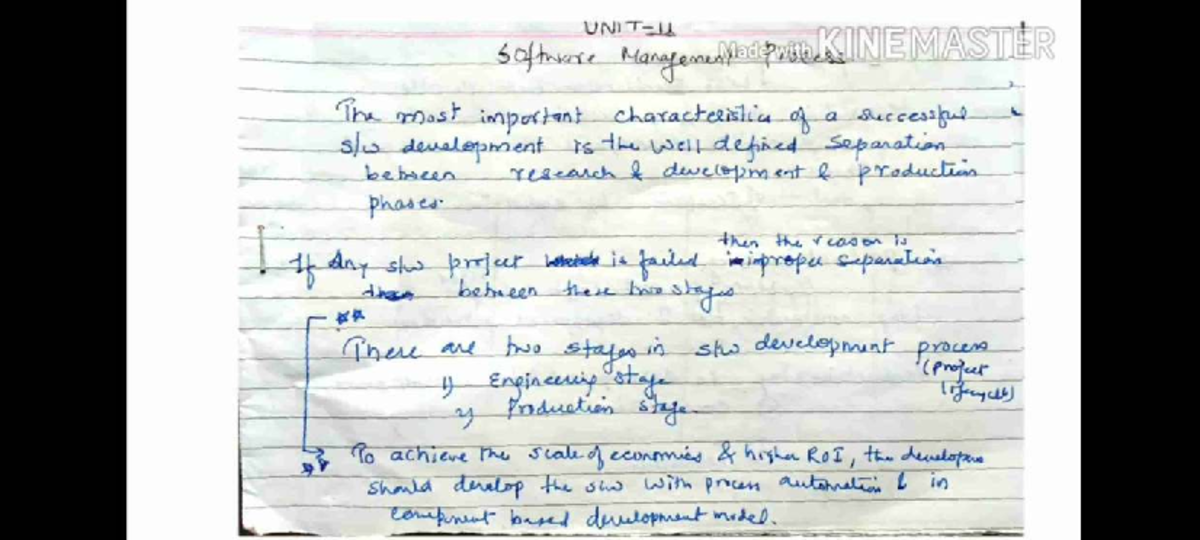 UNIT-II
Software Management Process
Made with KINEMASTER
The most important characteristics of a successful
s/w development is the well defined separation
between research & development & production
phases.
then the reason is
If Any s/w project is failed improper separation
between these two stages
There are two stages in s/w development process
(project
lifecycle)
1) Engineering stage
2) Production stage.
To achieve the scale of economics & higher ROI, the developers
should develop the s/w with process automation & in
component based development model.